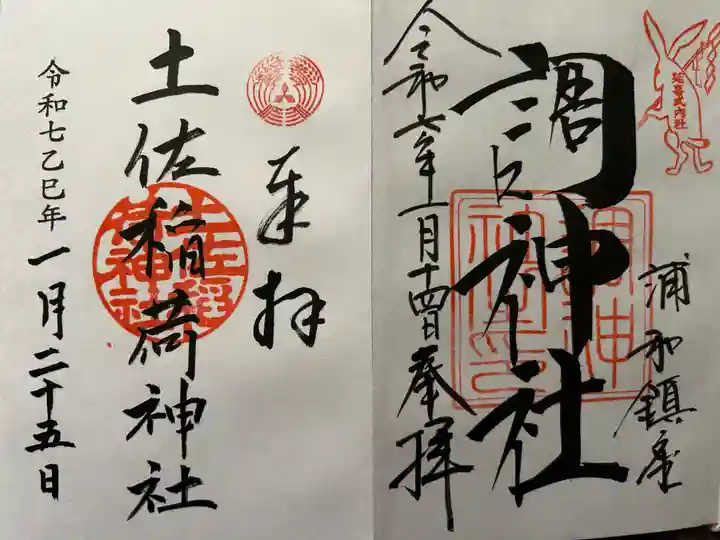 延喜式内社
浦和鎮座
調神社
令和七年一月十四日奉拝
奉拝
土佐稲荷神社
令和七乙巳年一月二十五日